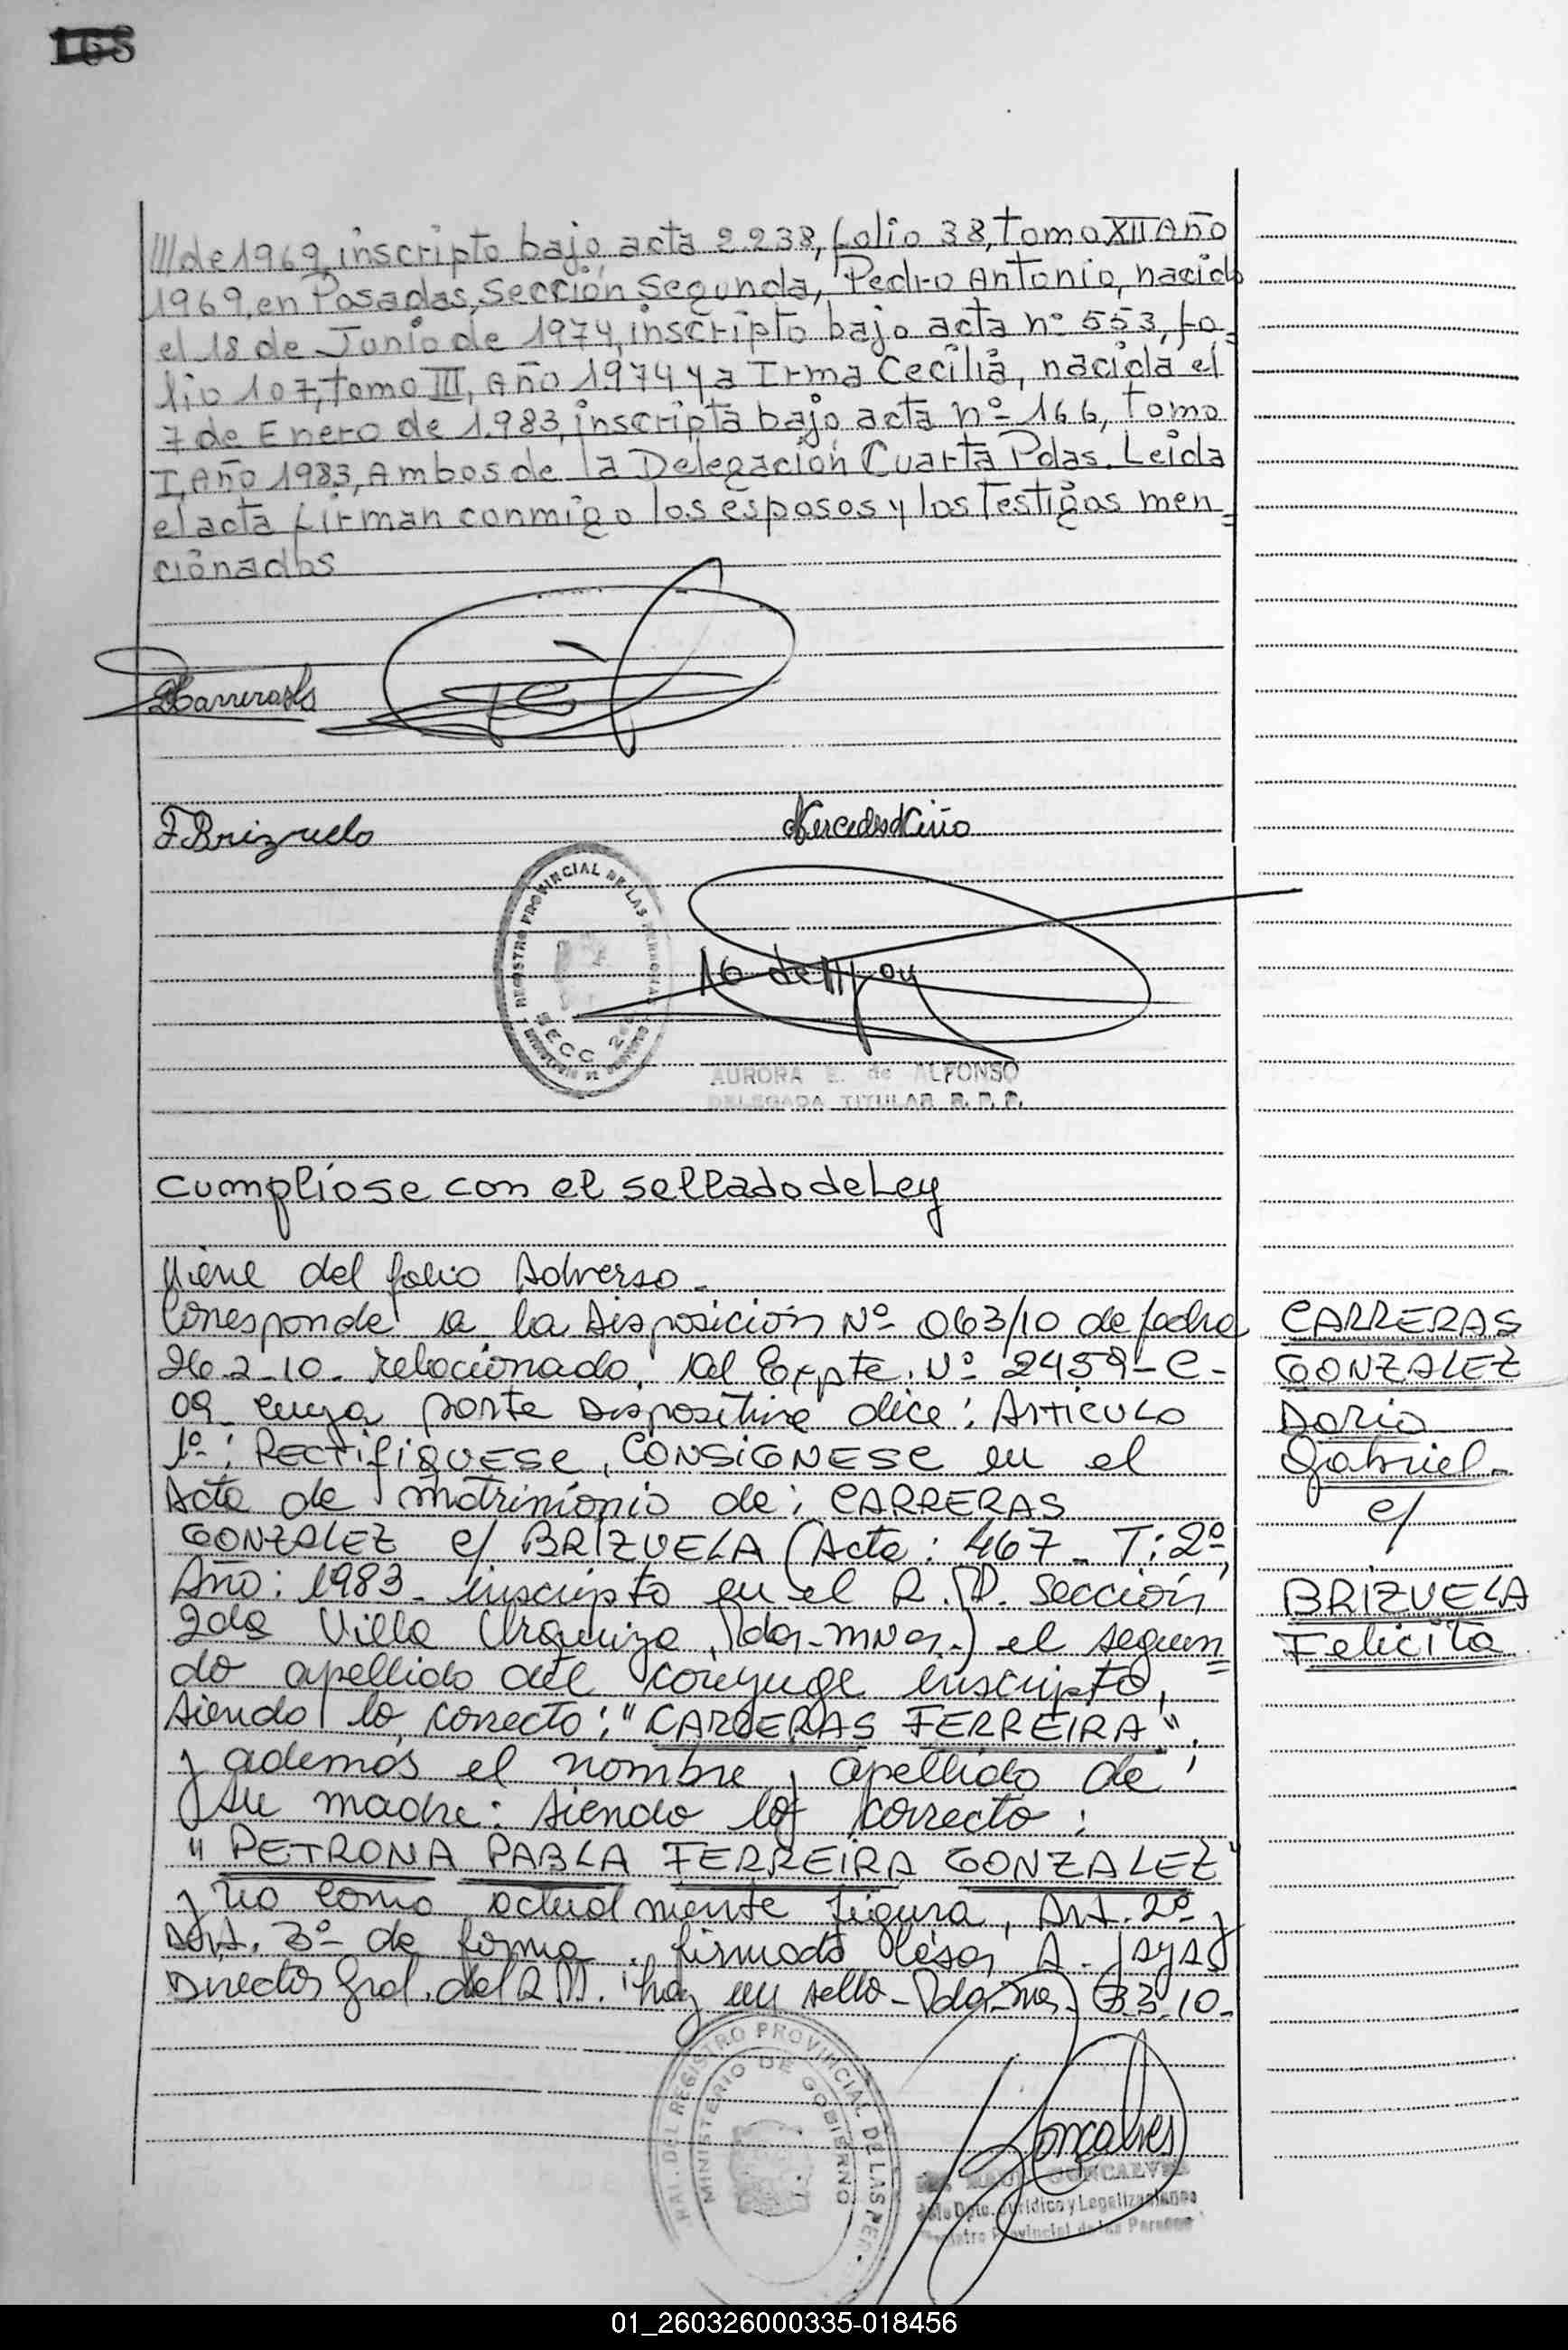 168
///de 1969, inscripto bajo acta 2.238, folio 38, tomo XII Año
1969, en Posadas, Sección Segunda, Pedro Antonio, nacido
el 18 de Junio de 1974, inscripto bajo acta nº 553, fo=
lio 107, tomo III, año 1974 y a Irma Cecilia, nacida el
7 de Enero de 1.983, inscripta bajo acta nº 166, tomo
I, Año 1983, Ambos de la Delegación Cuarta Pdas. Leida
el acta firman conmigo los esposos y los testigos men=
cionados
F Brizuela
Mercedes Niño
REGISTRO PROVINCIAL DE LAS PERSONAS
SECC. 2da
16 de III 04
AURORA E. de ALFONSO
DELEGADA TITULAR R. P. P.
Cumplíose con el sellado de Ley
Viene del folio Adverso.
Coresponde a la Disposición Nº 063/10 de fecha
26-2-10. relacionado, al Expte. Nº 2459-C-
09 cuya parte Dispositiva dice: Articulo
1º: RECTIFIQUESE, CONSIGNESE en el
Acta de matrimonio de: CARRERAS
GONZALEZ c/ BRIZUELA (Acta: 467 - T: 2º,
Año: 1983 - inscripto en el R.P.P. Sección
2da Villa Urquiza, Pdas-mnes.) el segun=
do apellido del conyuge inscripto,
siendo lo correcto: "CARRERAS FERREIRA".
y además el nombre y apellido de
su madre: siendo lo correcto:
"PETRONA PABLA FERREIRA GONZALEZ"
y no como actualmente figura, Art. 2º y
Art. 3º de forma. firmado César A.
Director Gral. del R.P.P. hay un sello - Pdas-Mnes. 3-3-10.
CARRERAS
GONZALEZ
Dario
Gabriel -
c/
BRIZUELA
Felicita
GRAL. DEL REGISTRO PROVINCIAL DE LAS PER
MINISTERIO DE GOBIERNO
Goncalves
RAUL GONCALVES
Jefe Dpto. Jurídico y Legalizaciones
Registro Provincial de las Personas
01_260326000335-018456